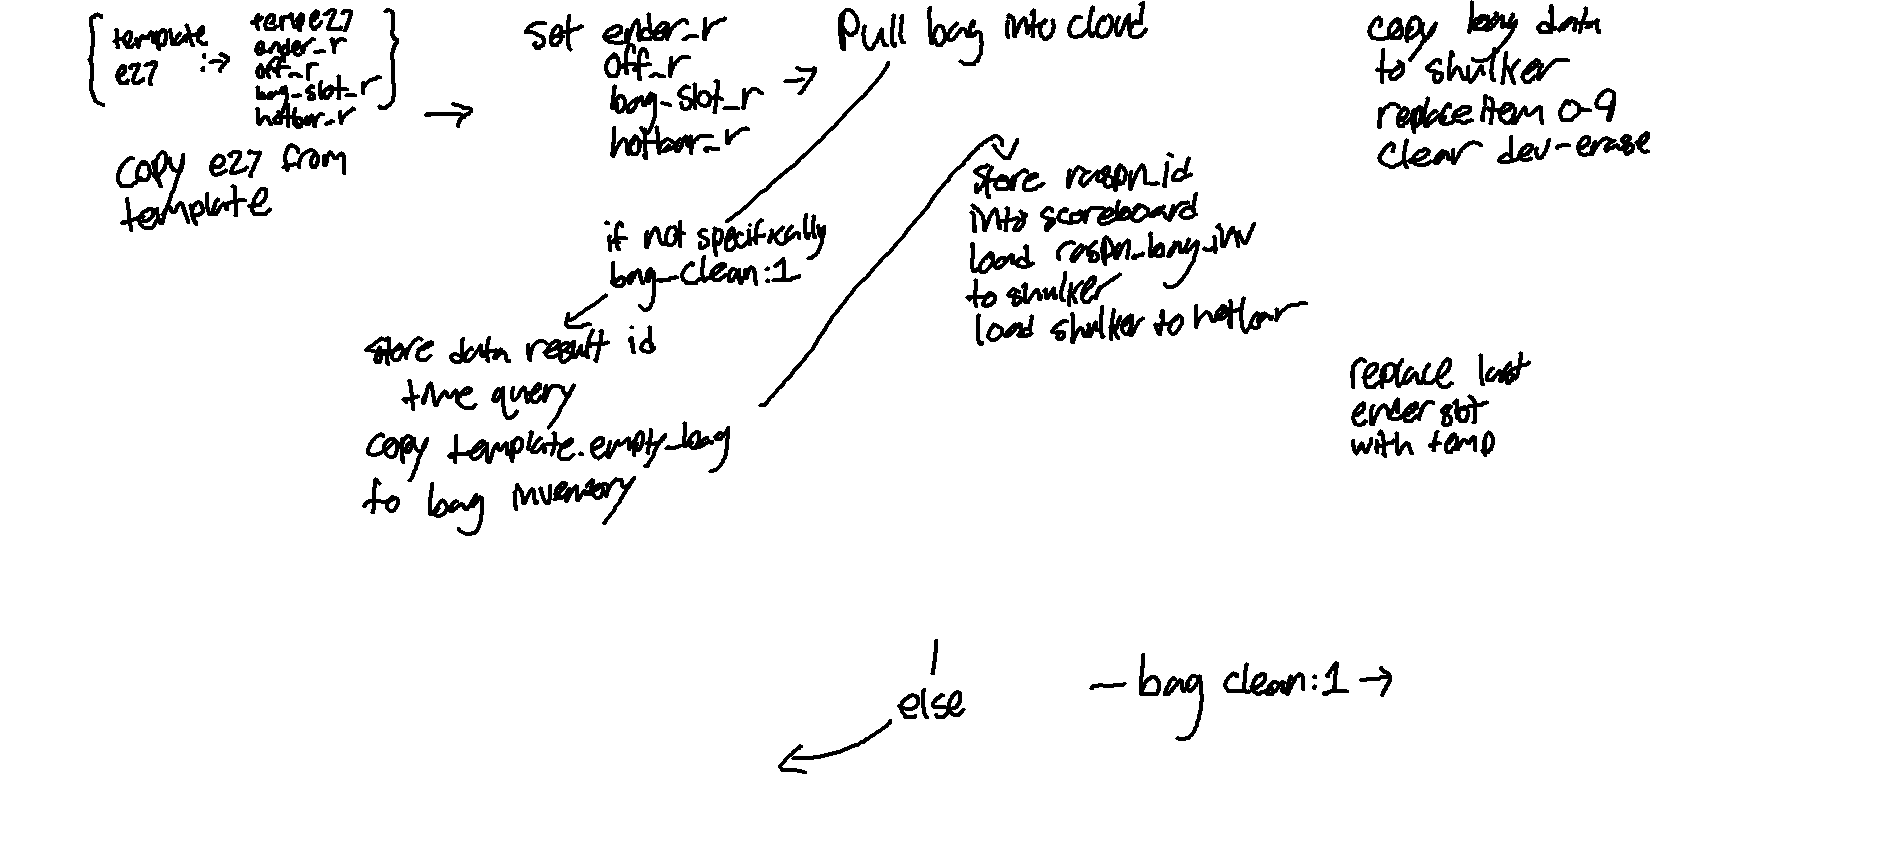 template
e27
:→
temp e27
ender_r
off_r
bag-slot_r
hotbar_r
copy e27 from
template
→
set ender_r
off_r
bag-slot_r
hotbar_r
→
Pull bag into cloud
if not specifically
bag_clean:1
store data result id
time query
copy template.empty_bag
to bag inventory
store raspn_id
into scoreboard
load raspn_bag_inv
to shulker
load shulker to hotbar
copy bag data
to shulker
replaceitem 0-9
clear dev-erase
replace last
ender slot
with temp
else
- bag clean:1 →